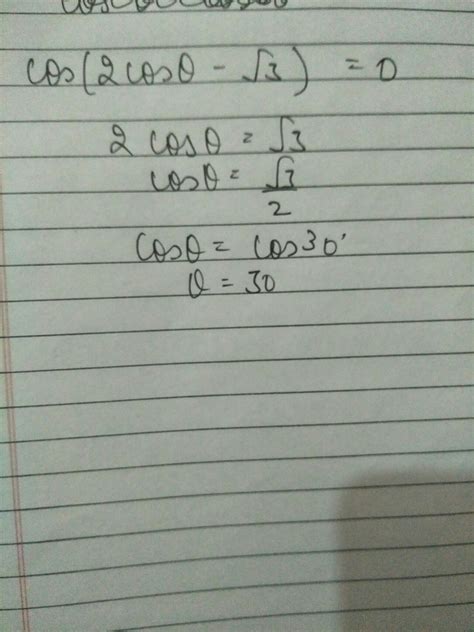 cos(2cosθ - √3) = 0
2 cosθ = √3
cosθ = √3/2
cosθ = cos30°
θ = 30